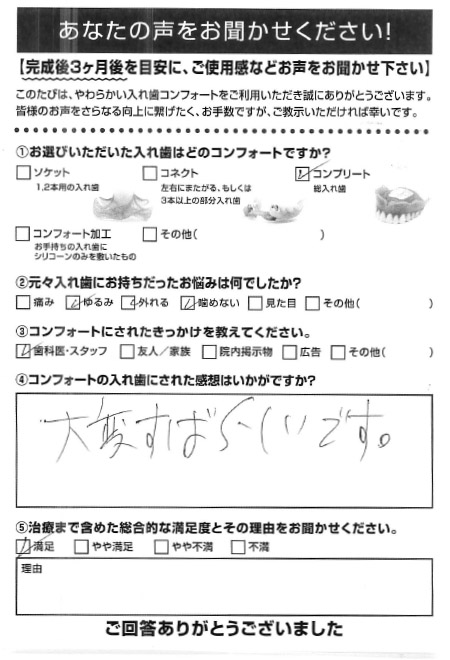 あなたの声をお聞かせください!
【完成後3ヶ月後を目安に、ご使用感などお声をお聞かせ下さい】
このたびは、やわらかい入れ歯コンフォートをご利用いただき誠にありがとうございます。
皆様のお声をさらなる向上に繋げたく、お手数ですが、ご教示いただければ幸いです。
①お選びいただいた入れ歯はどのコンフォートですか?
□ソケット □コネクト ☑コンプリート
1,2本用の入れ歯 左右にまたがる、もしくは 総入れ歯
3本以上の部分入れ歯
□コンフォート加工 □その他( )
お手持ちの入れ歯に
シリコーンのみを敷いたもの
②元々入れ歯にお持ちだったお悩みは何でしたか?
□痛み ☑ゆるみ ☑外れる ☑噛めない □見た目 □その他( )
③コンフォートにされたきっかけを教えてください。
☑歯科医・スタッフ □友人/家族 □院内掲示物 □広告 □その他( )
④コンフォートの入れ歯にされた感想はいかがですか?
大変すばらしいです。
⑤治療まで含めた総合的な満足度とその理由をお聞かせください。
☑満足 □やや満足 □やや不満 □不満
理由
ご回答ありがとうございました